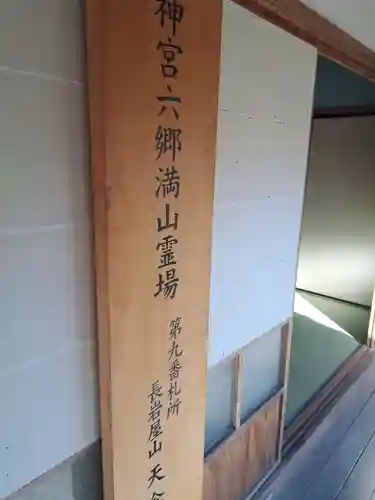 神宮六郷満山霊場
第九番札所
長岩屋山 天念